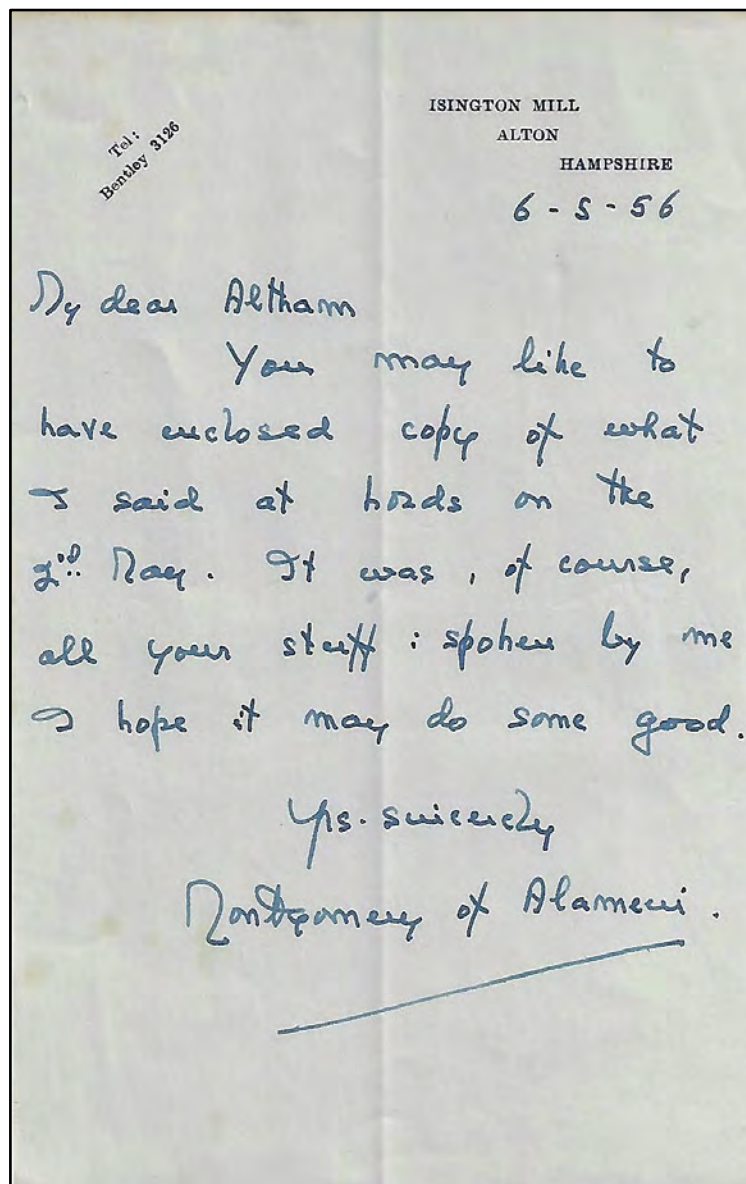 Tel:
Bentley 3126
ISINGTON MILL
ALTON
HAMPSHIRE
6 - 5 - 56
My dear Altham
You may like to
have enclosed copy of what
I said at Lords on the
2nd May. It was, of course,
all your stuff: spoken by me
I hope it may do some good.
Yrs. sincerely
Montgomery of Alamein.